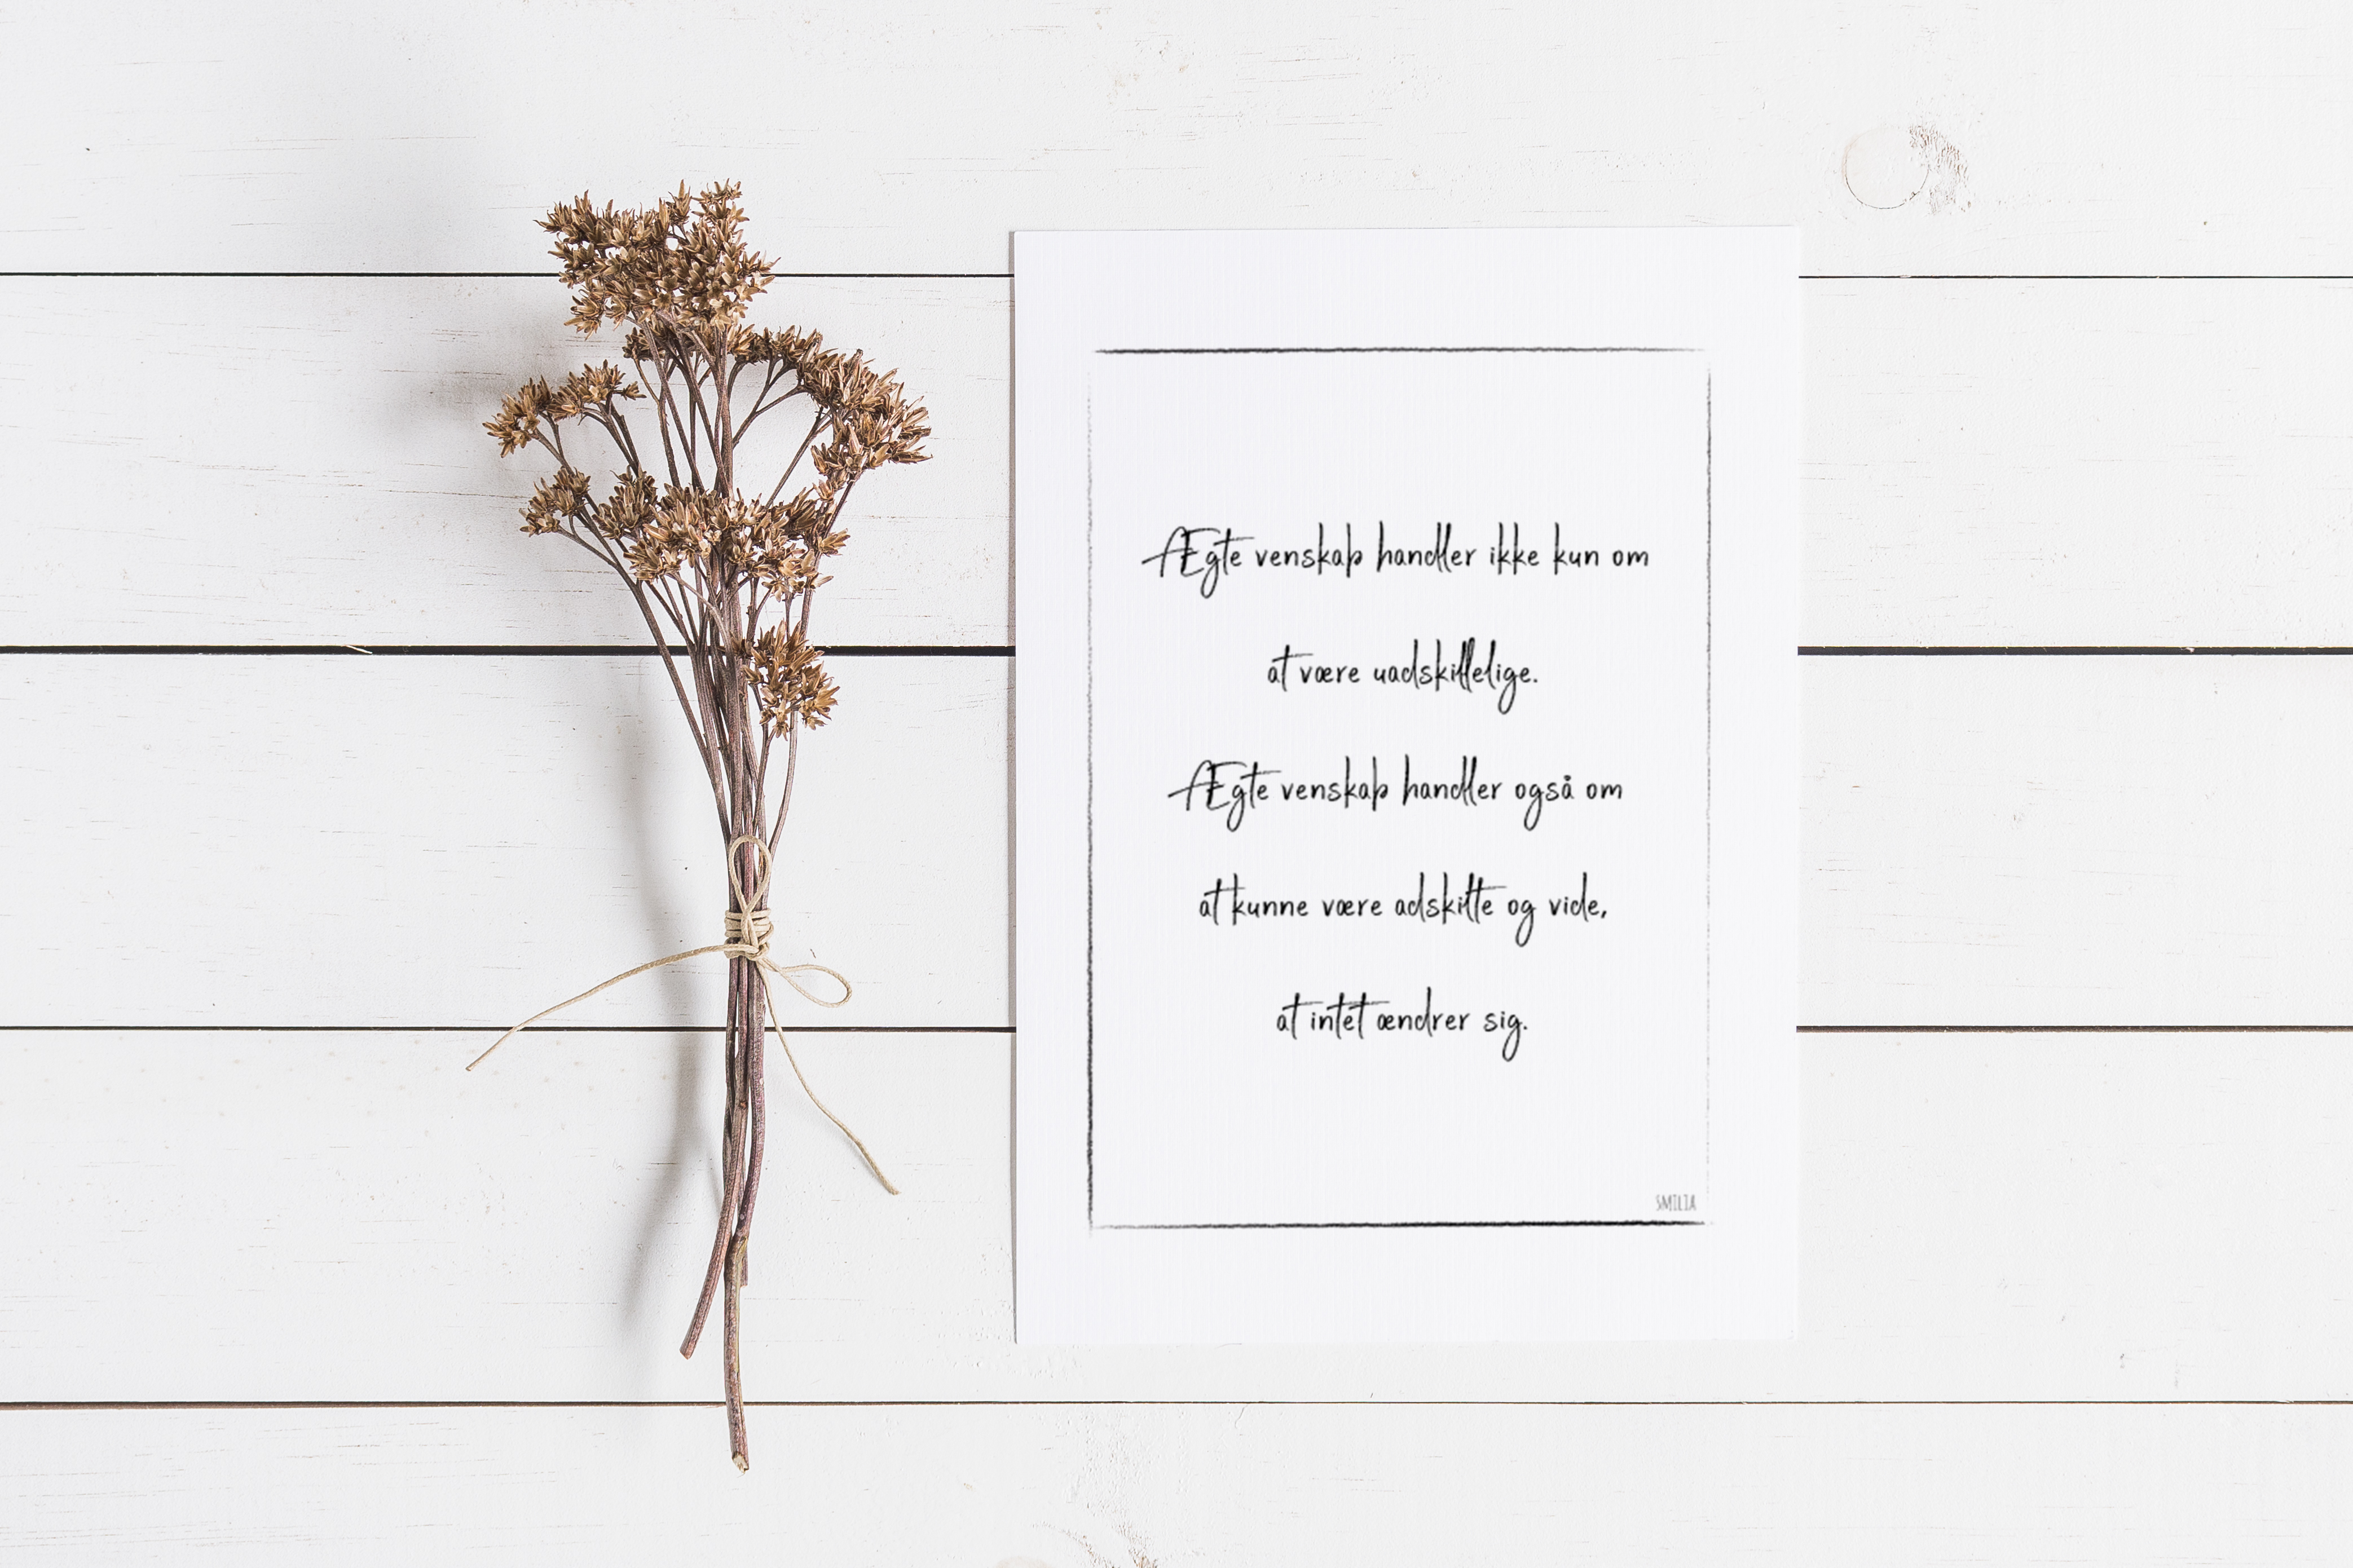 Ægte venskab handler ikke kun om
at være uadskillelige.
Ægte venskab handler også om
at kunne være adskilte og vide,
at intet ændrer sig.
SMILIA